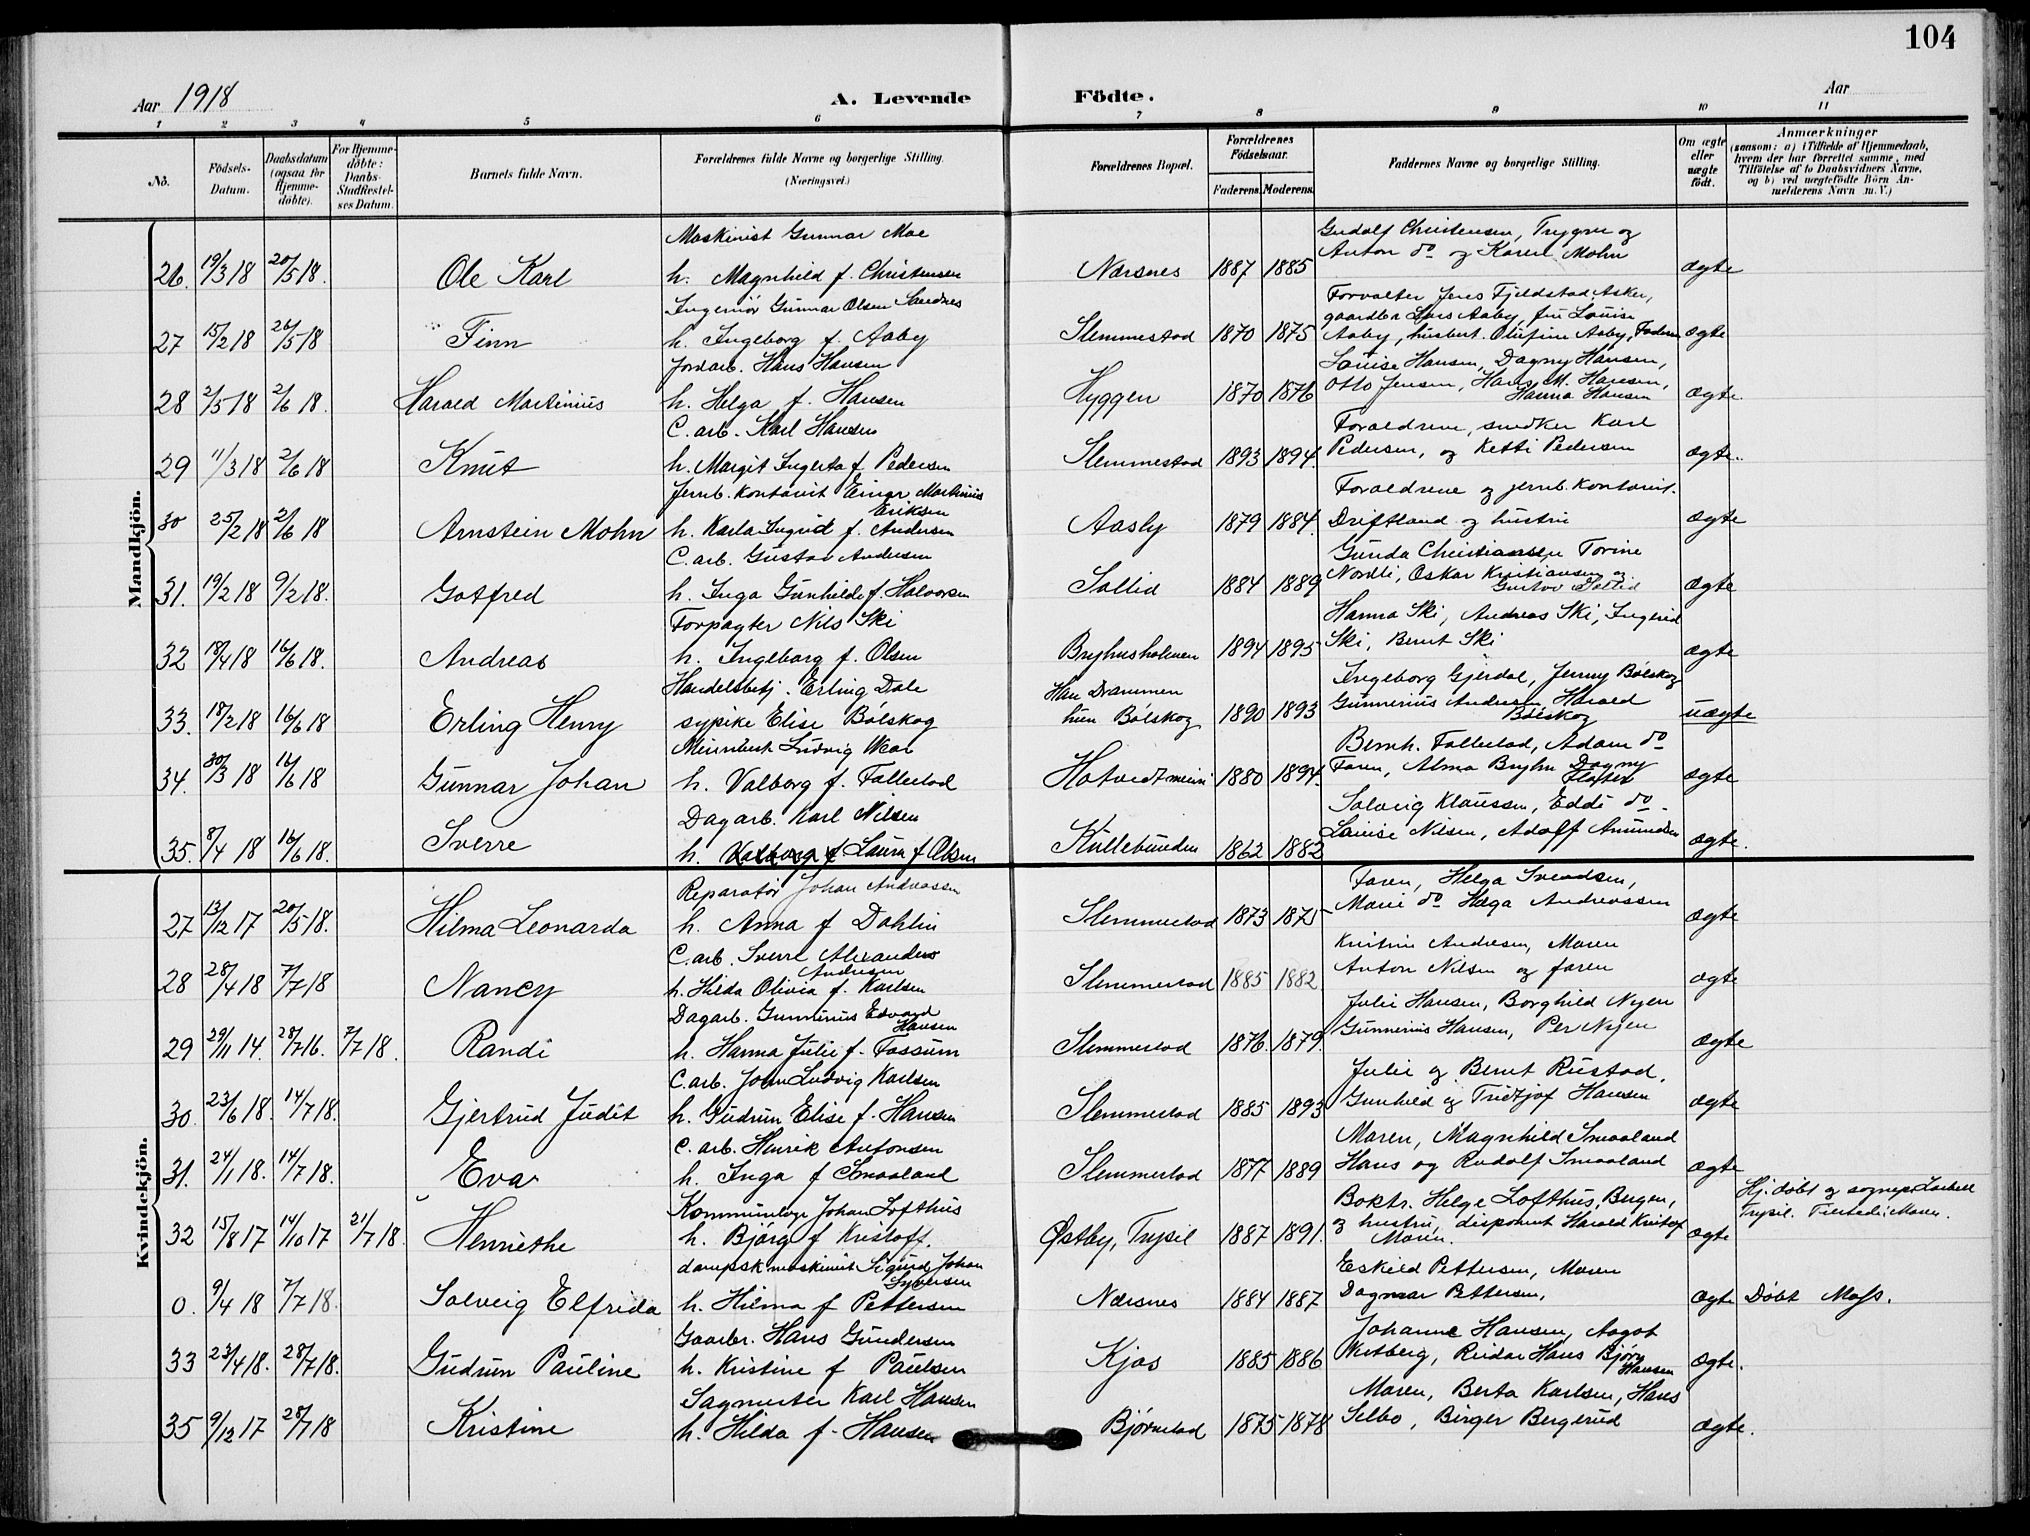 104
Aar 1918
A. Levende Födte.
Aar
1 2 3 4 5 6 7 8 9 10 11
No.
Födsels-Datum.
Daabsdatum (ogsaa for Hjemme-döbte).
For Hjemme-döbte: Daabs-Stadfestel-ses Datum.
Barnets fulde Navn.
Forældrenes fulde Navne og borgerlige Stilling. (Næringsvei.)
Forældrenes Bopæl.
Forældrenes Födselsaar.
Faderens. Moderens.
Faddernes Navne og borgerlige Stilling.
Om ægte eller uægte födt.
Anmærkninger
(saasom: a) i Tilfælde af Hjemmedaab, hvem der har forrettet samme, med Tilföielse af to Daabsvidners Navne, og b) ved uægtefödte Börn An-melderens Navn m. V.)
Mandkjön.
Maskinist Gunnar Moe Gudolf Christensen, Trygve og
Anton do og Karen Mohn
26. 19/3 18 20/5 18. Ole Karl h. Magnhild f. Christensen Nærsnes 1887 1885 ægte
Ingeniör Gunnar Olsen Sandnes Forvalter Jens Fjeldstad Asker,
gaardbr Lars Aaby, fru Louise
27 15/2 18 26/5 18 Finn h. Ingeborg f. Aaby Slemmestad 1870 1875 Aaby, husbest. Olufine Aaby, Faderen ægte
Jordarb. Hans Hansen Louise Hansen, Dagny Hansen,
28 2/5 18 2/6 18. Harald Martinius h. Helga f. Hansen Hyggen 1870 1876 Otto Jensen, Hans M. Hansen, Hanna Hansen ægte.
C. arb. Karl Hansen Forældrene, snedker Karl
29 11/3 18 2/6 18 Knut h. Margit Ingerta f. Pedersen Slemmestad 1893 1894. Pedersen, og Ketti Pedersen ægte.
Jernb. Kontorist Einar Martinius Eriksen Forældrene og jernb. Kontorist.
30 25/2 18 2/6 18 Arnstein Mohn h. Karla Ingrid f. Andersen Aasly 1879 1884. Driftland og hustru ægte
C. arb. Gustav Andersen Gunda Christiansen Torine
31. 19/2 18 9/2 18. Gotfred h. Inga Gunhilde f. Halvorsen Sollid 1884 1889 Nordli, Oskar Kristiansen og Gustav Sollid ægte
Forpagter Nils Ski Hanna Ski, Andreas Ski, Ingerid
32 18/4 18 16/6 18. Andreas h. Ingeborg f. Olsen Bryhusholmen 1894 1895 Ski, Bernt Ski ægte
Handelsbetj. Erling Dale Han Drammen Ingeborg Gjerdal, Jenny Bölskog
33. 18/2 18 16/6 18 Erling Henry sypike Elise Bölskog hun Bölskog 1890 1893 Gunnerius Andersen, Harald Bölskog uægte
Ludvig Bernh. Follestad, Adam do
34. 30/3 18 16/6 18 Gunnar Johan h. Valborg f. Follestad 1880 1894. Faren, Alma Bryhn Dagny ægte
Dagarb. Karl Nilsen Solveig Klaussen, Eddi do
35. 8/4 18 16/6 18. Sverre h. Valborg f Laura f Olsen Kullebunden 1862 1882 Louise Nilsen, Adolf Amundsen ægte.
Kvindekjön.
Reparatör Johan Andreassen Faren, Helga Svendsen,
27 13/12 17 20/5 18. Hilma Leonarda h. Anna f Dahlin Slemmestad 1873 1875 Marie do Helga Andreassen ægte
C. arb. Sverre Alexander Andersen Kristine Andresen, Moren
28 28/4 18 7/7 18 Nancy h. Hilda Olivia f. Karlsen Slemmestad 1885 1882 Anton Nilsen og faren ægte
Dagarb. Gunnerius Edvard Hansen Julie Hansen, Borghild Nyen
29 29/11 14. 28/7 16. 7/7 18. Randi h. Hanna Julie f. Fossum Slemmestad 1876. 1879. Gunnerius Hansen, Per Nyen ægte
C. arb. John Ludvig Karlsen Julie og Bernt Rustad.
30. 23/6 18. 14/7 18. Gjertrud Judit h. Gudrun Elise f. Hansen Slemmestad 1885 1893 Gunhild og Tridtjof Hansen ægte
C. arb. Henrik Antonsen Maren, Magnhild Smaaland
31. 24/1 18. 14/7 18. Eva h. Inga f Smaaland Slemmestad 1877 1889 Hans og Rudolf Smaaland ægte
Kommunelæge Johan Lofthus Boktr. Helge Lofthus, Bergen, Hj. döbt
32 15/8 17 14/10 17 21/7 18. Henriethe h. Björg f Kristoff. Østby, Trysil 1887 1891. og hustru, disponent Harald Kristof Moren. ægte Trysil.
dampsk maskinist Sigurd Johan Syversen Eskild Pettersen, Moren
0. 9/4 18 7/7 18. Solveig Elfrida h. Hilma f Pettersen Nærsnes 1884 1887 Dagmar Pettersen, ægte Döbt Moss.
Gaarbr. Hans Gundersen Johanne Hansen, Aagot
33 23/4 18. 28/7 18. Gudrun Pauline h. Kristine f Paulsen Kjos 1885 1886 Westberg, Reidar Hans Björn Hansen ægte.
Sagmester Karl Hansen Moren, Berta Karlsen, Hans
35 9/12 17 28/7 18 Kristine h. Hilda f. Hansen Bjørnstad 1875 1878 Selbo, Birger Bergerud ægte.